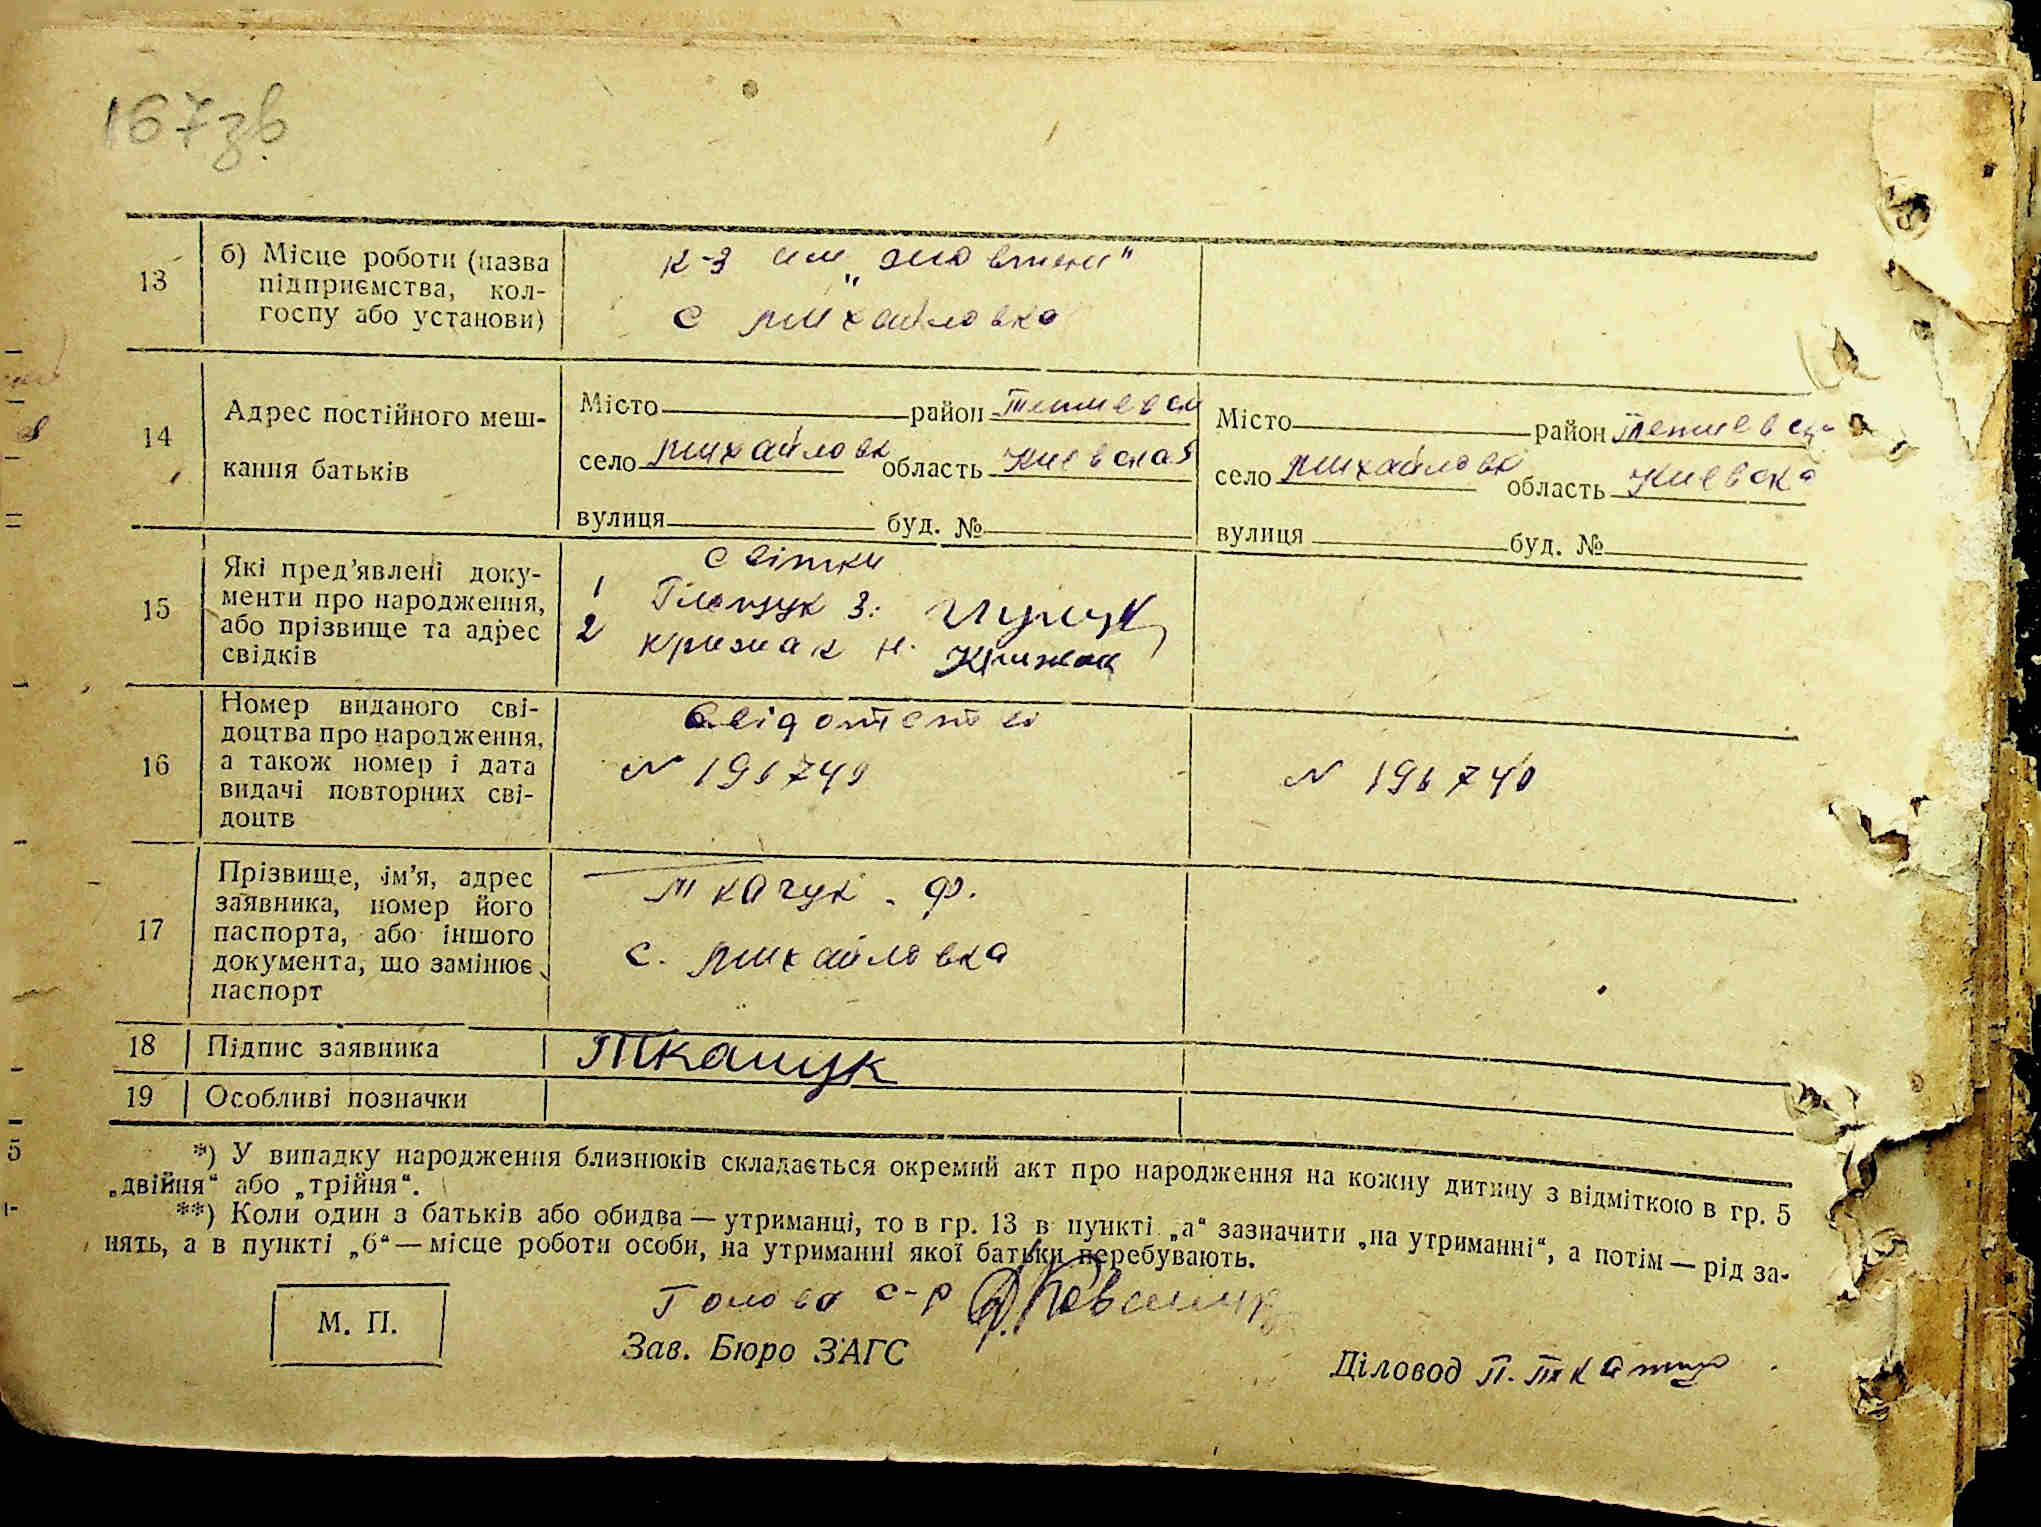 167зв
13
б) Місце роботи (назва
підприємства, кол-
госпу або установи)
к-з им „жовтень"
с михайловка
14
Адрес постійного меш-
кання батьків
Місто район Тетиевск
село михайловк область Киевская
вулиця буд. №
Місто район Тетиевск
село михайловк область Киевска
вулиця буд. №
15
Які пред'явлені доку-
менти про народження,
або прізвище та адрес
свідків
Світки
1 З.
2 Крижак Н. Крижак
16
Номер виданого сві-
доцтва про народження,
а також номер і дата
видачі повторних сві-
доцтв
N 196749
N 196740
17
Прізвище, ім'я, адрес
заявника, номер його
паспорта, або іншого
документа, що замінює
паспорт
Ткачук. Ф.
с. михайловка
18
Підпис заявника
Ткачук
19
Особливі позначки
*) У випадку народження близнюків складається окремий акт про народження на кожну дитину з відміткою в гр. 5
„двійня" або „трійня".
**) Коли один з батьків або обидва — утриманці, то в гр. 13 в пункті „а" зазначити „на утриманні", а потім — рід за-
нять, а в пункті „б" — місце роботи особи, на утриманні якої батьки перебувають.
М. П.
Голова с-р
Зав. Бюро ЗАГС
Діловод П.